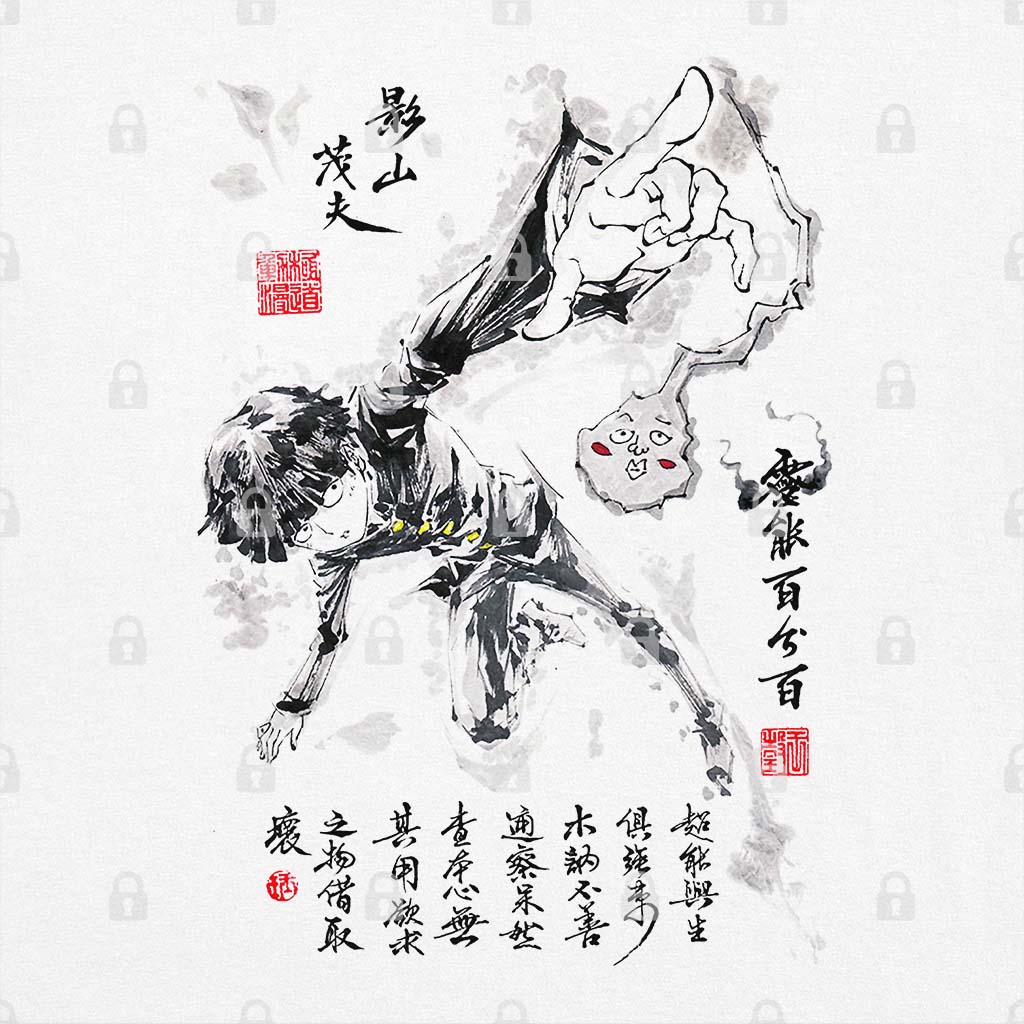 影山
茂夫
靈能百分百
超能與生
俱來
木訥不善
通察呆然
查本心無
其用欲求
之物借取